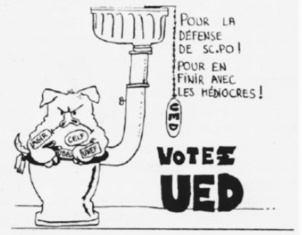 POUR LA
DÉFENSE
DE SC.PO!
POUR EN
FINIR AVEC
LES MÉDIOCRES!
UED
CELF
UNEF
VOTEZ
UED